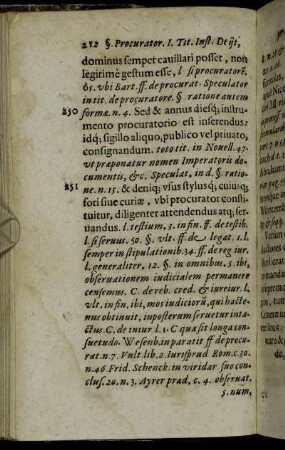 212 §. Procurator. I. Tit. Inst. De ijs,
dominus semper cavillari posset, non
legitimè gestum esse, l si procuratorē.
65. vbi Bart. ff. de procurat. Speculator
in tit. de procuratore. § ratione autem
250 formæ. n. 4. Sed & annus diesq; instru-
mento procuratorio est inserendus:
idq; sigillo aliquo, publico vel privato,
consignandum. toto tit. in Novell. 47.
vt præponatur nomen Imperatoris do-
cumentis, &c. Speculat. in d. § ratio-
251 ne. n. 15. & deniq; vsus stylusq; cuiusq;
fori sive curiæ, vbi procurator consti-
tuitur, diligenter attendendus atq; ser-
vandus. l. testium. 3. in fin. ff. de testib.
l. si servus. 50. §. vlt. ff. de legat. 1. l.
semper in stipulationib. 34. ff. de reg iur.
l. generaliter. 12. §. in omnibus. 5. ibi,
observationem iudicialem permanere
censemus. C. de reb. cred. & iureiur. l.
vlt. in fin. ibi, mos iudiciorū, qui hacte-
nus obtinuit, inposterum servetur inta-
ctus. C. de iniur l. 1. C quæ sit longa con-
suetudo. Wesenb. in paratit ff de procu-
rat. n. 7. Vult. lib. 2. Iurisprud Rom. c. 30.
n. 46 Frid. Schenck. in viridar suo con-
clus. 20. n. 3. Ayrer prad. c. 4. observat.
5. num.